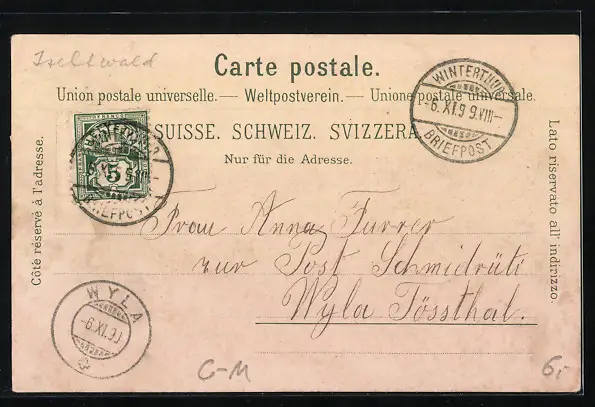 Iseltwald
Carte postale.
Union postale universelle. — Weltpostverein. — Unione postale universale.
SUISSE. SCHWEIZ. SVIZZERA.
Nur für die Adresse.
Côté réservé à l'adresse.
Lato riservato all' indirizzo.
WINTERTHUR
-6.XI.9 9.VIII-
BRIEFPOST
WINTERTHUR
5
BRIEFPOST
Frau Anna Furrer
zur Post Schmidrüti
Wyla Tössthal.
WYLA
-6.XI.99
C-M
6,-